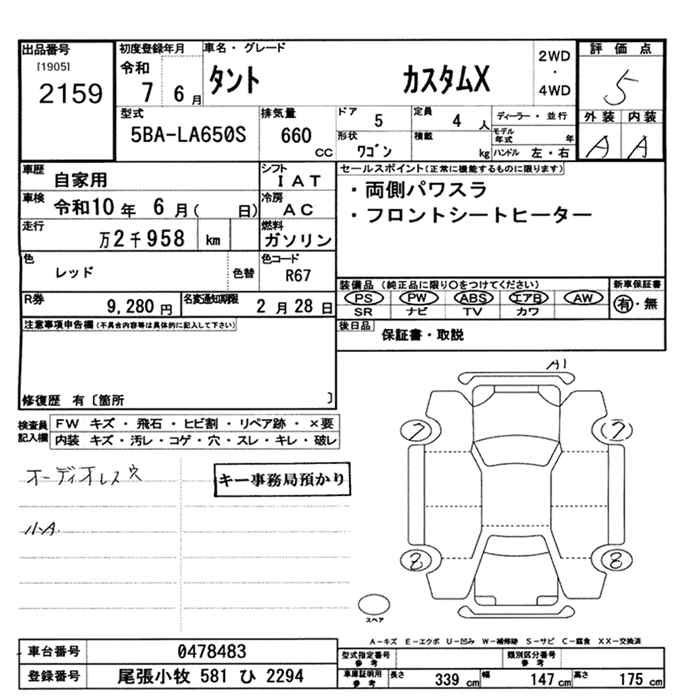 出品番号
[1905]
2159
初度登録年月
令和
7 6月
車名・グレード
タント カスタムX
2WD
・
4WD
評価点
5
外装 内装
A A
型式
5BA-LA650S
排気量
660
CC
ドア
5
定員
4 人
形状
ワゴン
積載
kg
ディーラー・並行
モデル年式 年
ハンドル 左・右
車歴
自家用
シフト
IAT
車検
令和10年 6月( 日)
冷房
AC
走行
万2千958 km
燃料
ガソリン
色
レッド
色替
色コード
R67
R券
9,280円
名変通知期限
2月28日
セールスポイント(正常に機能するものに限ります)
・両側パワスラ
・フロントシートヒーター
装備品(純正品に限り○をつけてください)
PS PW ABS エアB AW
SR ナビ TV カワ
新車保証書
有・無
後日品
保証書・取説
注意事項申告欄(不具合内容等は具体的に記入して下さい)
修復歴 有〔箇所 〕
検査員記入欄
FW キズ・飛石・ヒビ割・リペア跡・×要
内装 キズ・汚レ・コゲ・穴・スレ・キレ・破レ
オーディオレス穴
小A
キー事務局預かり
A1
7 7
8 8
スペア
A-キズ E-エクボ U-凹み W-補修跡 S-サビ C-腐食 XX-交換済
車台番号
0478483
登録番号
尾張小牧 581 ひ 2294
型式指定番号
参考
類別区分番号
参考
車庫証明用
参考
長さ 339 cm 幅 147 cm 高さ 175 cm